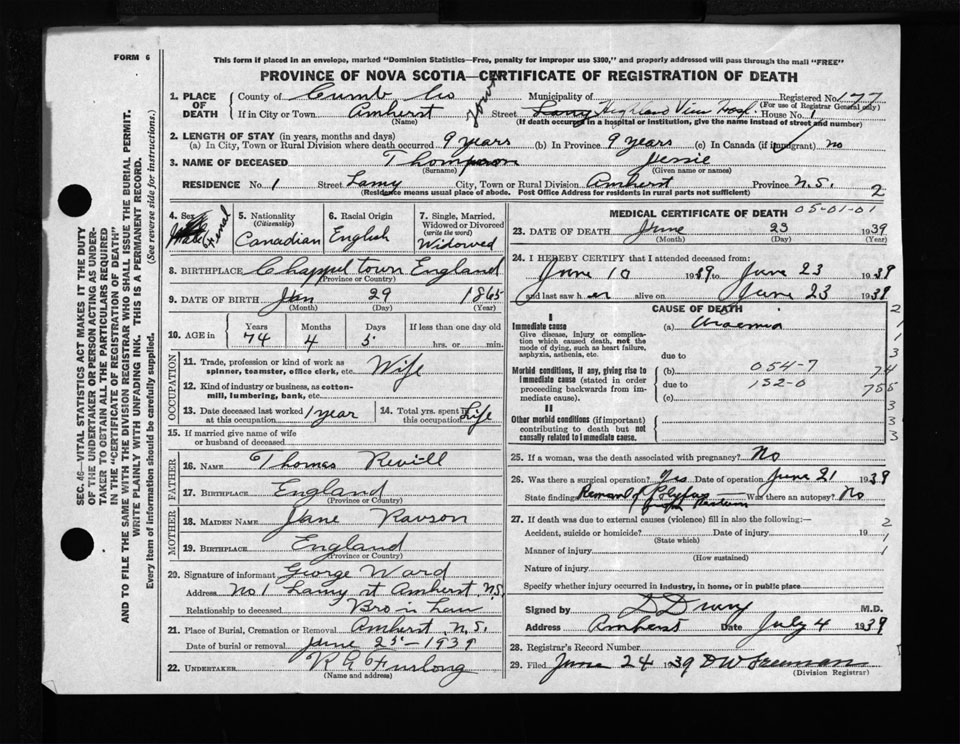 FORM 6
This form if placed in an envelope, marked "Dominion Statistics—Free, penalty for improper use $300," and properly addressed will pass through the mail "FREE"
PROVINCE OF NOVA SCOTIA—CERTIFICATE OF REGISTRATION OF DEATH
1. PLACE OF DEATH County of Cumb Co Municipality of Registered No. 177
(For use of Registrar General only)
If in City or Town Amherst Town Street Lamy Highland View Hosp. House No. 1
(Name) (If death occurred in a hospital or institution, give the name instead of street and number)
2. LENGTH OF STAY (in years, months and days)
(a) In City, Town or Rural Division where death occurred 9 years (b) In Province 9 years (c) In Canada (if immigrant) no
3. NAME OF DECEASED Thompson Jessie
(Surname) (Given name or names)
RESIDENCE No. 1 Street Lamy City, Town or Rural Division Amherst Province N.S. 2
(Residence means usual place of abode. Post Office Address for residents in rural parts not sufficient)
SEC. 46—VITAL STATISTICS ACT MAKES IT THE DUTY
OF THE UNDERTAKER OR PERSON ACTING AS UNDER-
TAKER TO OBTAIN ALL THE PARTICULARS REQUIRED
IN THE "CERTIFICATE OF REGISTRATION OF DEATH"
AND TO FILE THE SAME WITH THE DIVISION REGISTRAR WHO SHALL ISSUE THE BURIAL PERMIT.
WRITE PLAINLY WITH UNFADING INK. THIS IS A PERMANENT RECORD.
Every item of information should be carefully supplied. (See reverse side for instructions.)
4. Sex 5. Nationality (Citizenship) Canadian 6. Racial Origin English 7. Single, Married, Widowed or Divorced (write the word) Widowed
8. BIRTHPLACE Chappel town England
(Province or Country)
9. DATE OF BIRTH Jan 29 1865
(Month) (Day) (Year)
10. AGE in Years 74 Months 4 Days If less than one day old hrs. or min.
OCCUPATION
11. Trade, profession or kind of work as spinner, teamster, office clerk, etc. Wife
12. Kind of industry or business, as cotton-mill, lumbering, bank, etc.
13. Date deceased last worked at this occupation 1 year 14. Total yrs. spent in this occupation Life
15. If married give name of wife or husband of deceased
FATHER
16. NAME Thomas Revill
17. BIRTHPLACE England
(Province or Country)
MOTHER
18. MAIDEN NAME Jane Ravson
19. BIRTHPLACE England
(Province or Country)
20. Signature of informant George Ward
Address No 1 Lamy st Amherst N.S.
Relationship to deceased Bro in Law
21. Place of Burial, Cremation or Removal Amherst N.S.
Date of burial or removal June 25 - 1939
22. UNDERTAKER R G Furlong
(Name and address)
MEDICAL CERTIFICATE OF DEATH 05-01-01
23. DATE OF DEATH June 23 1939
(Month) (Day) (Year)
24. I HEREBY CERTIFY that I attended deceased from:
June 10 1939 to June 23 1939
and last saw h er alive on June 23 1939
CAUSE OF DEATH
I
Immediate cause (a) Uraemia
Give disease, injury or complication which caused death, not the mode of dying, such as heart failure, asphyxia, asthenia, etc.
due to
Morbid conditions, if any, giving rise to immediate cause (stated in order proceeding backwards from immediate cause)
(b) 054-7
due to 132-0
(c)
II
Other morbid conditions (if important) contributing to death but not causally related to immediate cause.
2
1
1
3
74
755
3
3
3
25. If a woman, was the death associated with pregnancy? No
26. Was there a surgical operation? Yes Date of operation June 21 1939
State findings Removal of Polypus Was there an autopsy? No
27. If death was due to external causes (violence) fill in also the following:—
Accident, suicide or homicide? Date of injury 19
(State which)
Manner of injury
(How sustained)
Nature of injury
2
1
1
Specify whether injury occurred in industry, in home, or in public place
Signed by D Drury M.D.
Address Amherst Date July 4 1939
28. Registrar's Record Number
29. Filed June 24 1939 DW Freeman
(Division Registrar)